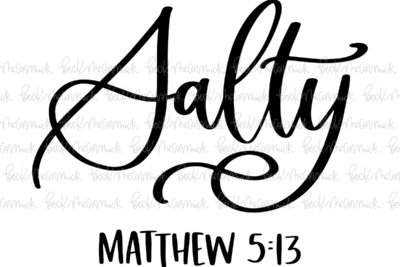 Salty
MATTHEW 5:13